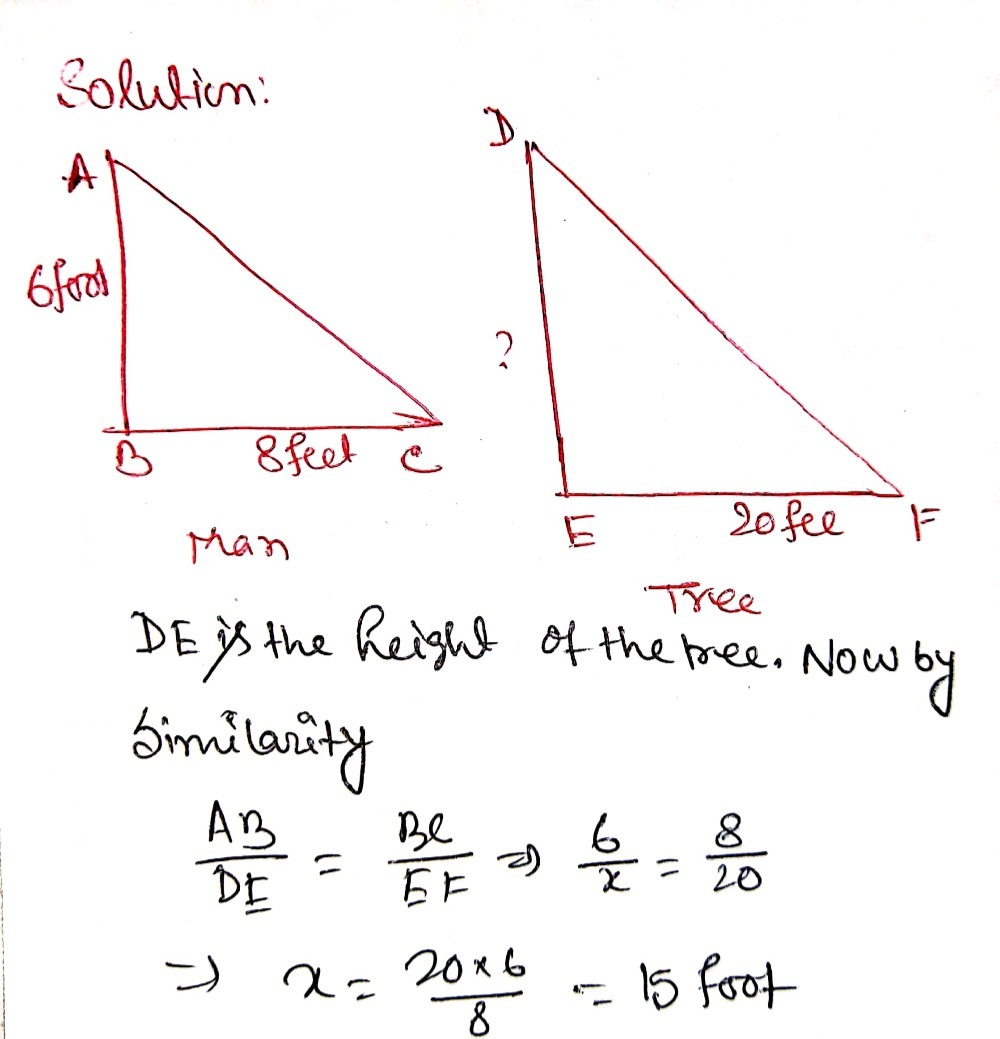 Solution:
A
D
6 foot
?
B
8 feet
C
E
20 fee
F
Man
Tree
DE is the height of the tree. Now by
Similarity
AB/DE = BC/EF ⇒ 6/x = 8/20
⇒ x = 20×6/8 = 15 foot